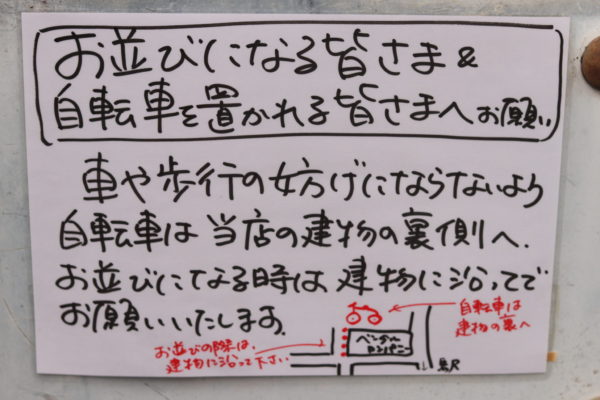 お並びになる皆さま&
自転車を置かれる皆さまへお願い
車や歩行の妨げにならないよう
自転車は当店の建物の裏側へ.
お並びになる時は、建物に沿ってで
お願いいたします。
自転車は
建物の裏へ
お並びの際は、
建物に沿って下さい
ベンガル